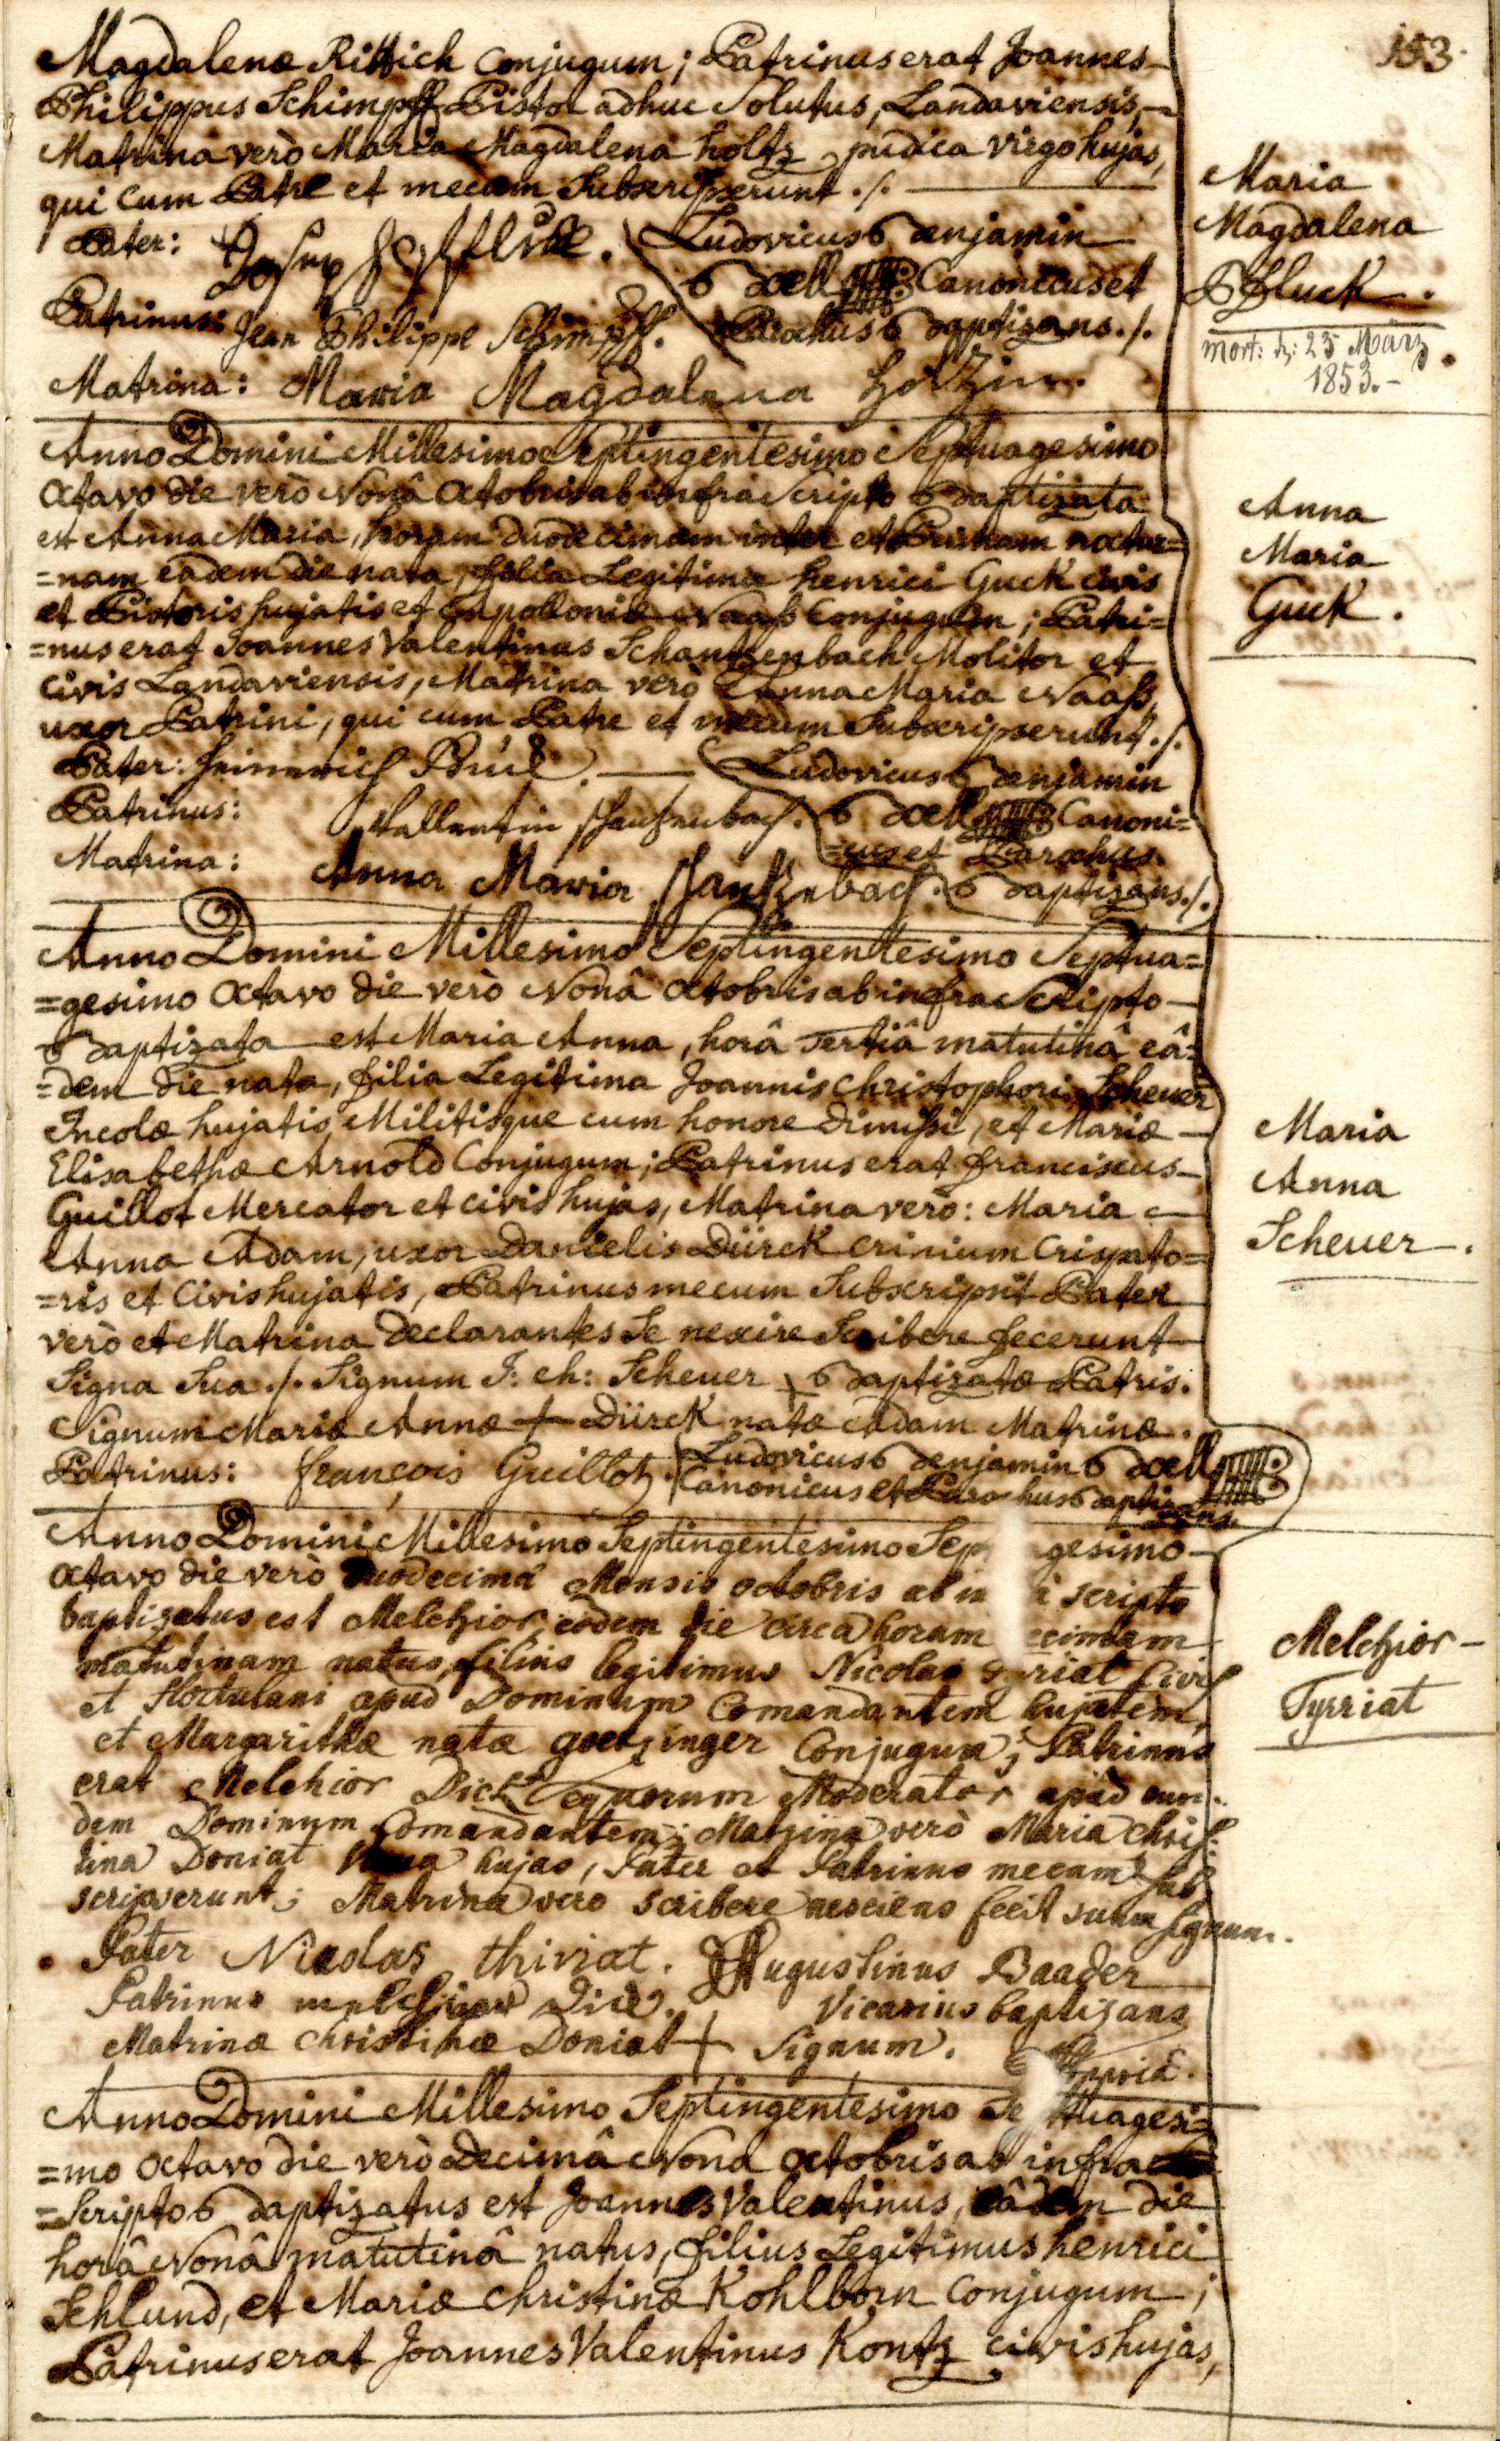 153.
Magdalenæ Rittich Conjugum; Patrinus erat Joannes
Philippus Schimpff Pistor adhuc Solutus, Landaviensis,
Matrina verò Maria Magdalena holtz, pudica virgo hujas,
qui cum Patre et mecum Subscripserunt ./.
Pater: Ludovicus Benjamin
Boell Canonicus et
Patrinus: Jean Philippe Schimpff. Parochus Baptizans ./.
Matrina: Maria Magdalena Holtzin.
Maria
Magdalena
Pfluck.
mort: d: 25 März
1853.-
Anno Domini Millesimo Septingentesimo Septuagesimo
Octavo die verò Nonâ Octobris ab infra Scripto Baptizata
est Anna Maria, horam duodecimam inter et Primam noctur=
=nam eâdem die nata, filia Legitima henrici Guck civis
et Pistoris hujatis et Apolloniæ Naaß Conjugum; Patri=
=nus erat Joannes Valentinus Schantzenbach Molitor et
civis Landaviensis, Matrina verò Anna Maria Naaß,
uxor Patrini, qui cum Patre et mecum Subscripserunt ./.
Pater: Heinrich Ludovicus Benjamin
Patrinus: Vallentin Schantzenbach. Boell Canoni=
=cus et Parochus
Matrina: Anna Maria Schantzenbach. Baptizans ./.
Anna
Maria
Guck.
Anno Domini Millesimo Septingentesimo Septua=
=gesimo Octavo die verò Nonâ Octobris ab infra Scripto
Baptizata est Maria Anna, horâ Tertiâ matutinâ eâ=
=dem die nata, filia Legitima Joannis Christophori Scheuer
Incolæ hujatis Militisque cum honore dimissi, et Mariæ
Elisabethæ Arnold Conjugum; Patrinus erat franciscus
Guillot Mercator et civis hujas, Matrina verò: Maria
Anna Adam, uxor Danielis Dürck crinium Crispato=
=ris et Civis hujatis, Patrinus mecum Subscripsit Pater
verò et Matrina declarantes Se nescire Scribere fecerunt
Signa Sua ./. Signum J: ch: Scheuer + Baptizatæ Patris.
Signum Mariæ Annæ + Dürck natæ Adam Matrinæ.
Patrinus: françois Guillot. Ludovicus Benjamin Boell
Canonicus et Parochus Baptizans.
Maria
Anna
Scheuer.
Anno Domini Millesimo Septingentesimo Sep gesimo
Octavo die verò duodecimâ Mensis octobris ab in à scripto
baptizatus est Melchior eôdem die circa horam ecimam
matutinam natus, filius legitimus Nicolai Tyriat Civis
et Hortulani apud Dominum Comandantem hujatem,
et Margarithæ natæ goetzinger Conjugum; Patrinus
erat Melchior Dick equorum Moderator apud eun=
dem Dominum Comandantem; Matrina verò Maria chris=
tina Doniat hujas, Pater et Patrinus mecum sub
scripserunt; Matrina vero scribere nesciens fecit suum signum.
Pater Nicolas thiriat. Augustinus Baader
Patrinus melchior Dick. Vicarius baptizans
Matrinæ christinæ Doniat + Signum.
Melchior
Tyrriat
Anno Domini Millesimo Septingentesimo Se tuagesi=
=mo Octavo die verò Decimâ Nonâ Octobris ab infra
=Scripto Baptizatus est Joannes Valentinus, eâdem die
horâ Nonâ matutinâ natus, filius Legitimus henrici
Schlund, et Mariæ Christinæ Kohlborn Conjugum;
Patrinus erat Joannes Valentinus Kontz civis hujas,